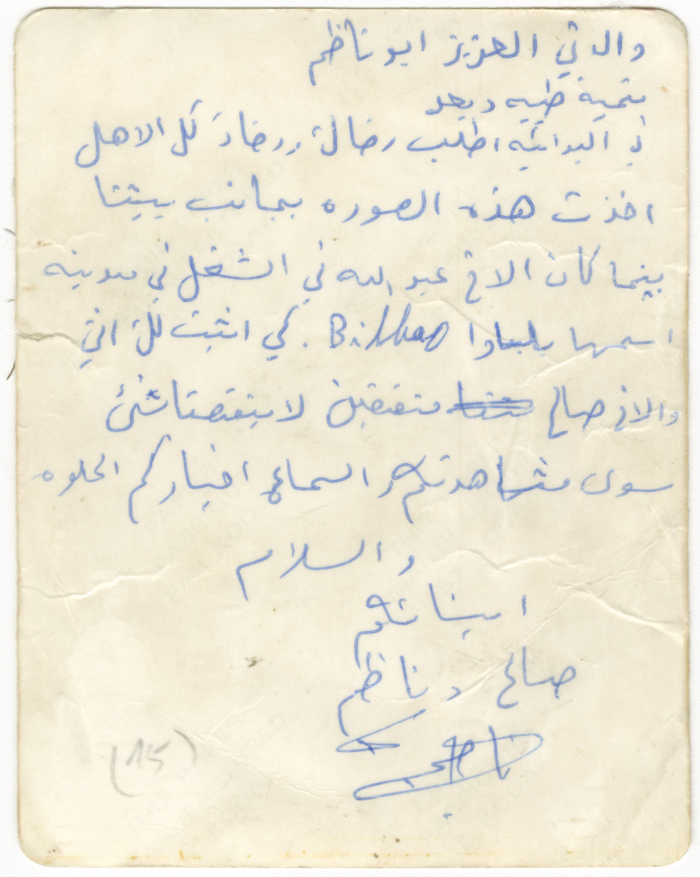 والدي العزيز ابو ناظم
بتحية طيبه وبعد
في البدايه اطلب رضاك ورضاء كل الاهل
اخذت هذه الصوره بجانب بيتنا
بينما كان الاخ عبدالله في الشغل في مدينه
اسمها بلباوا Bilbao. كي اثبت لك اني
والاخ صالح متفقين لا ينقصنا شئ
سوى مشاهدتكم والسماع اخباركم الحلوه
والسلام
ابنائكم
صالح وناظم
(15)